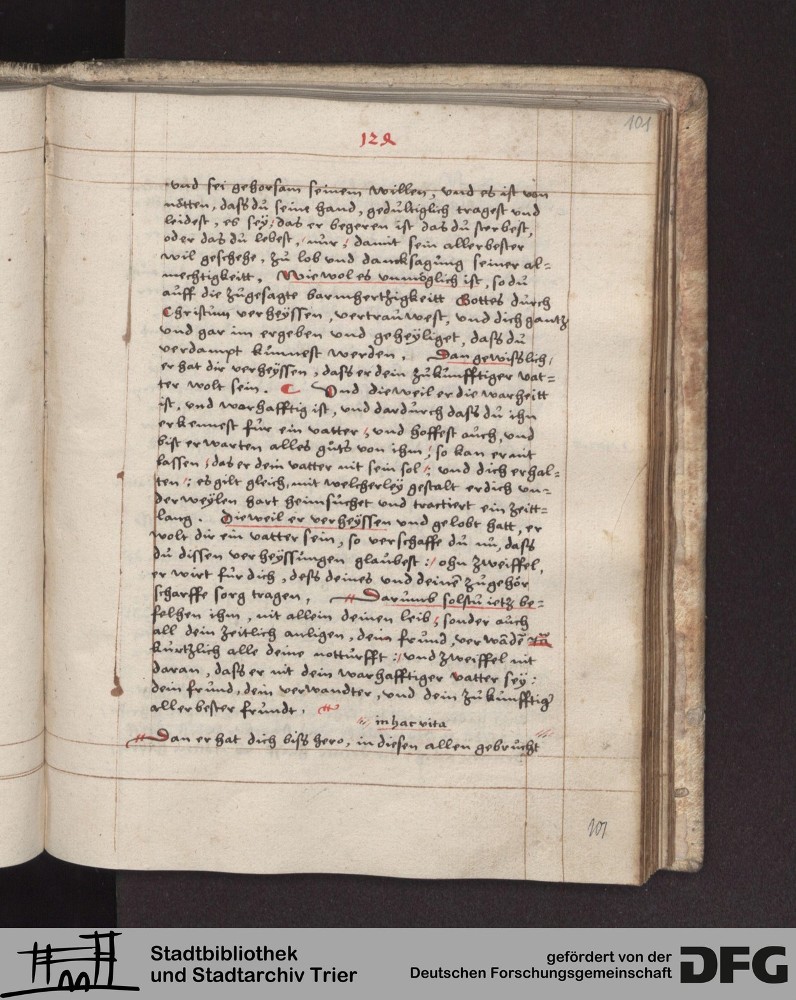 101
129
vnd sei gehorsam seinem willen, vnd es ist von
nötten, dass du seine hand, gedultiglich tragest vnd
leidest, es sey, das er begeren ist das du sterbest,
oder das du lebest, nur, damit sein allerbester
wil geschehe, zu lob vnd dancksagung seiner al=
mechtigkeitt. Wiewol es vnmöglich ist, so du
auff die zugesagte barmhertzigkeitt Gottes durch
Christum verheÿssen, vertrauwest, vnd dich gantz
vnd gar im ergeben vnd geheÿliget, dass du
verdampt kunnest werden. Dan gewisslich
er hat dir verheÿssen, dass er dein zukunfftiger vat=
ter wolt sein. Vnd dieweil er die warheitt
ist, vnd warhafftig ist, vnd dardurch dass du ihn
erkennest fur ein vatter, vnd hoffest auch, vnd
bist erwarten alles guts von ihm, so kan er nit
lassen, das er dein vatter nit sein sol: vnd dich erhal=
ten: es gilt gleich, mit welcherleÿ gestalt er dich vn=
derweÿlen hart heimsuchet vnd tractiert ein zeitt=
lang. Dieweil er verheÿssen vnd gelobt hatt, er
wolt dir ein vatter sein, so verschaffe du nu, dass
du dissen verheÿssungen glaubest: ohn zweiffel,
er wirt fur dich, dess deines vnd deinē zugehör
scharffe sorg tragen. Darumb solstu ietz be=
felhen ihm, nit allein deinen leib, sonder auch
all dein zeitlich anligen, dein frund, verwādē
kurtzlich alle deine notturfft: vnd zweiffel nit
daran, dass er nit dein warhafftiger vatter sey:
dein frund, dein verwandter, vnd dein zukunfftig
allerbester frundt.
in hac vita
Dan er hat dich biss hero, in diesen allen gebrucht
101
Stadtbibliothek
und Stadtarchiv Trier
gefördert von der
Deutschen Forschungsgemeinschaft
DFG